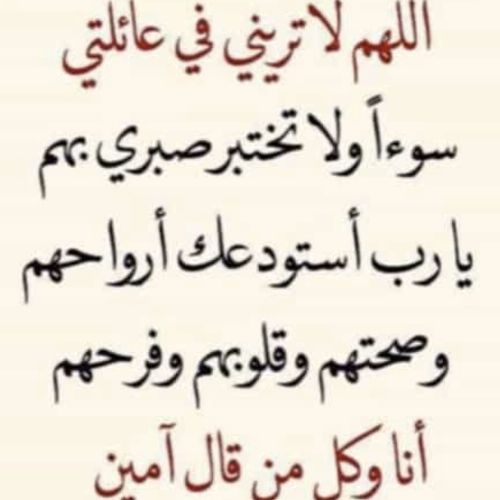 اللهم لا تريني في عائلتي
سوءاً ولا تختبر صبري بهم
يا رب أستودعك أرواحهم
وصحتهم وقلوبهم وفرحهم
أنا وكل من قال آمين